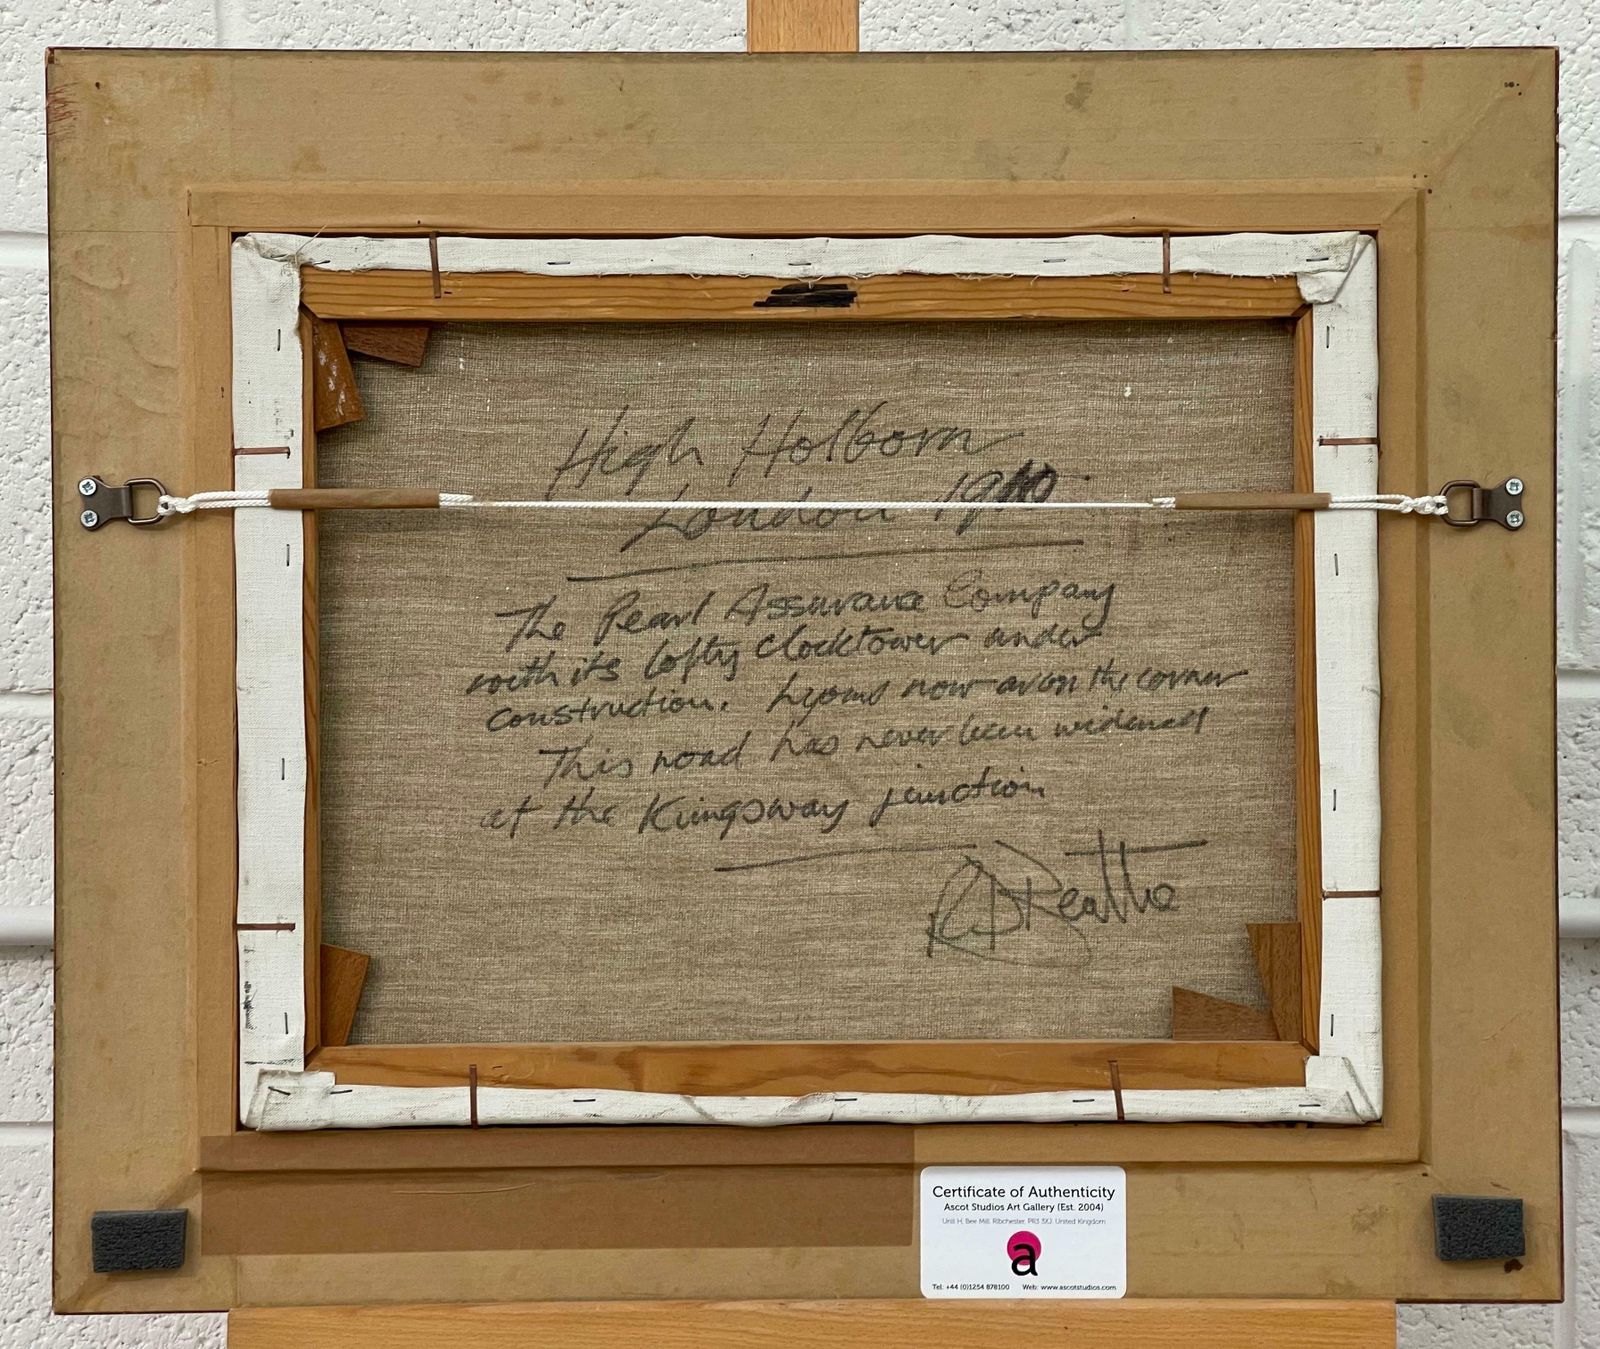 High Holborn
London 1910
The Pearl Assurance Company
with its lofty clocktower under
construction. Lyons now on the corner
This road has never been widened
at the Kingsway junction
Beattie
Certificate of Authenticity
Ascot Studios Art Gallery (Est. 2004)
Unit H, Bee Mill, Ribchester, PR3 3XJ, United Kingdom
a
Tel: +44 (0)1254 878100 Web: www.ascotstudios.com